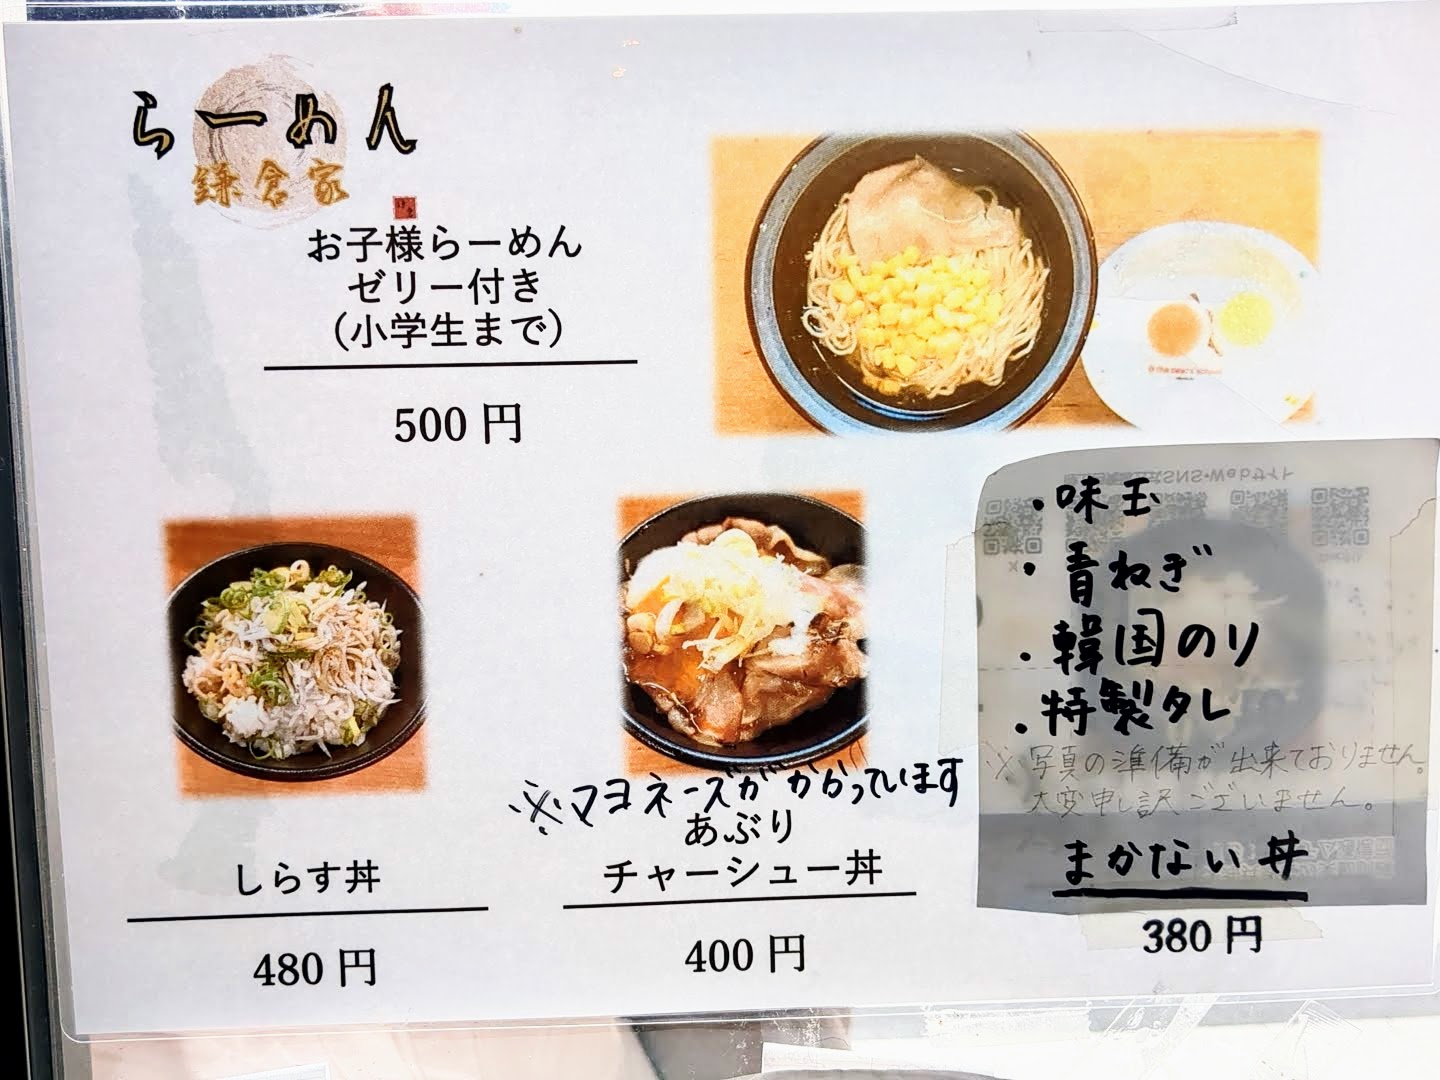 らーめん
鎌倉家
お子様らーめん
ゼリー付き
(小学生まで)
500 円
※マヨネーズがかかっています
しらす丼
480 円
あぶり
チャーシュー丼
400 円
・味玉
・青ねぎ
・韓国のり
・特製タレ
※写真の準備が出来ておりません。
大変申し訳ございません。
まかない丼
380 円